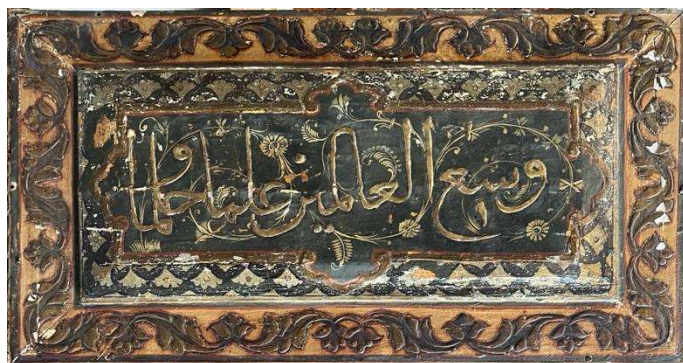 وسع العالمين علما وحلما